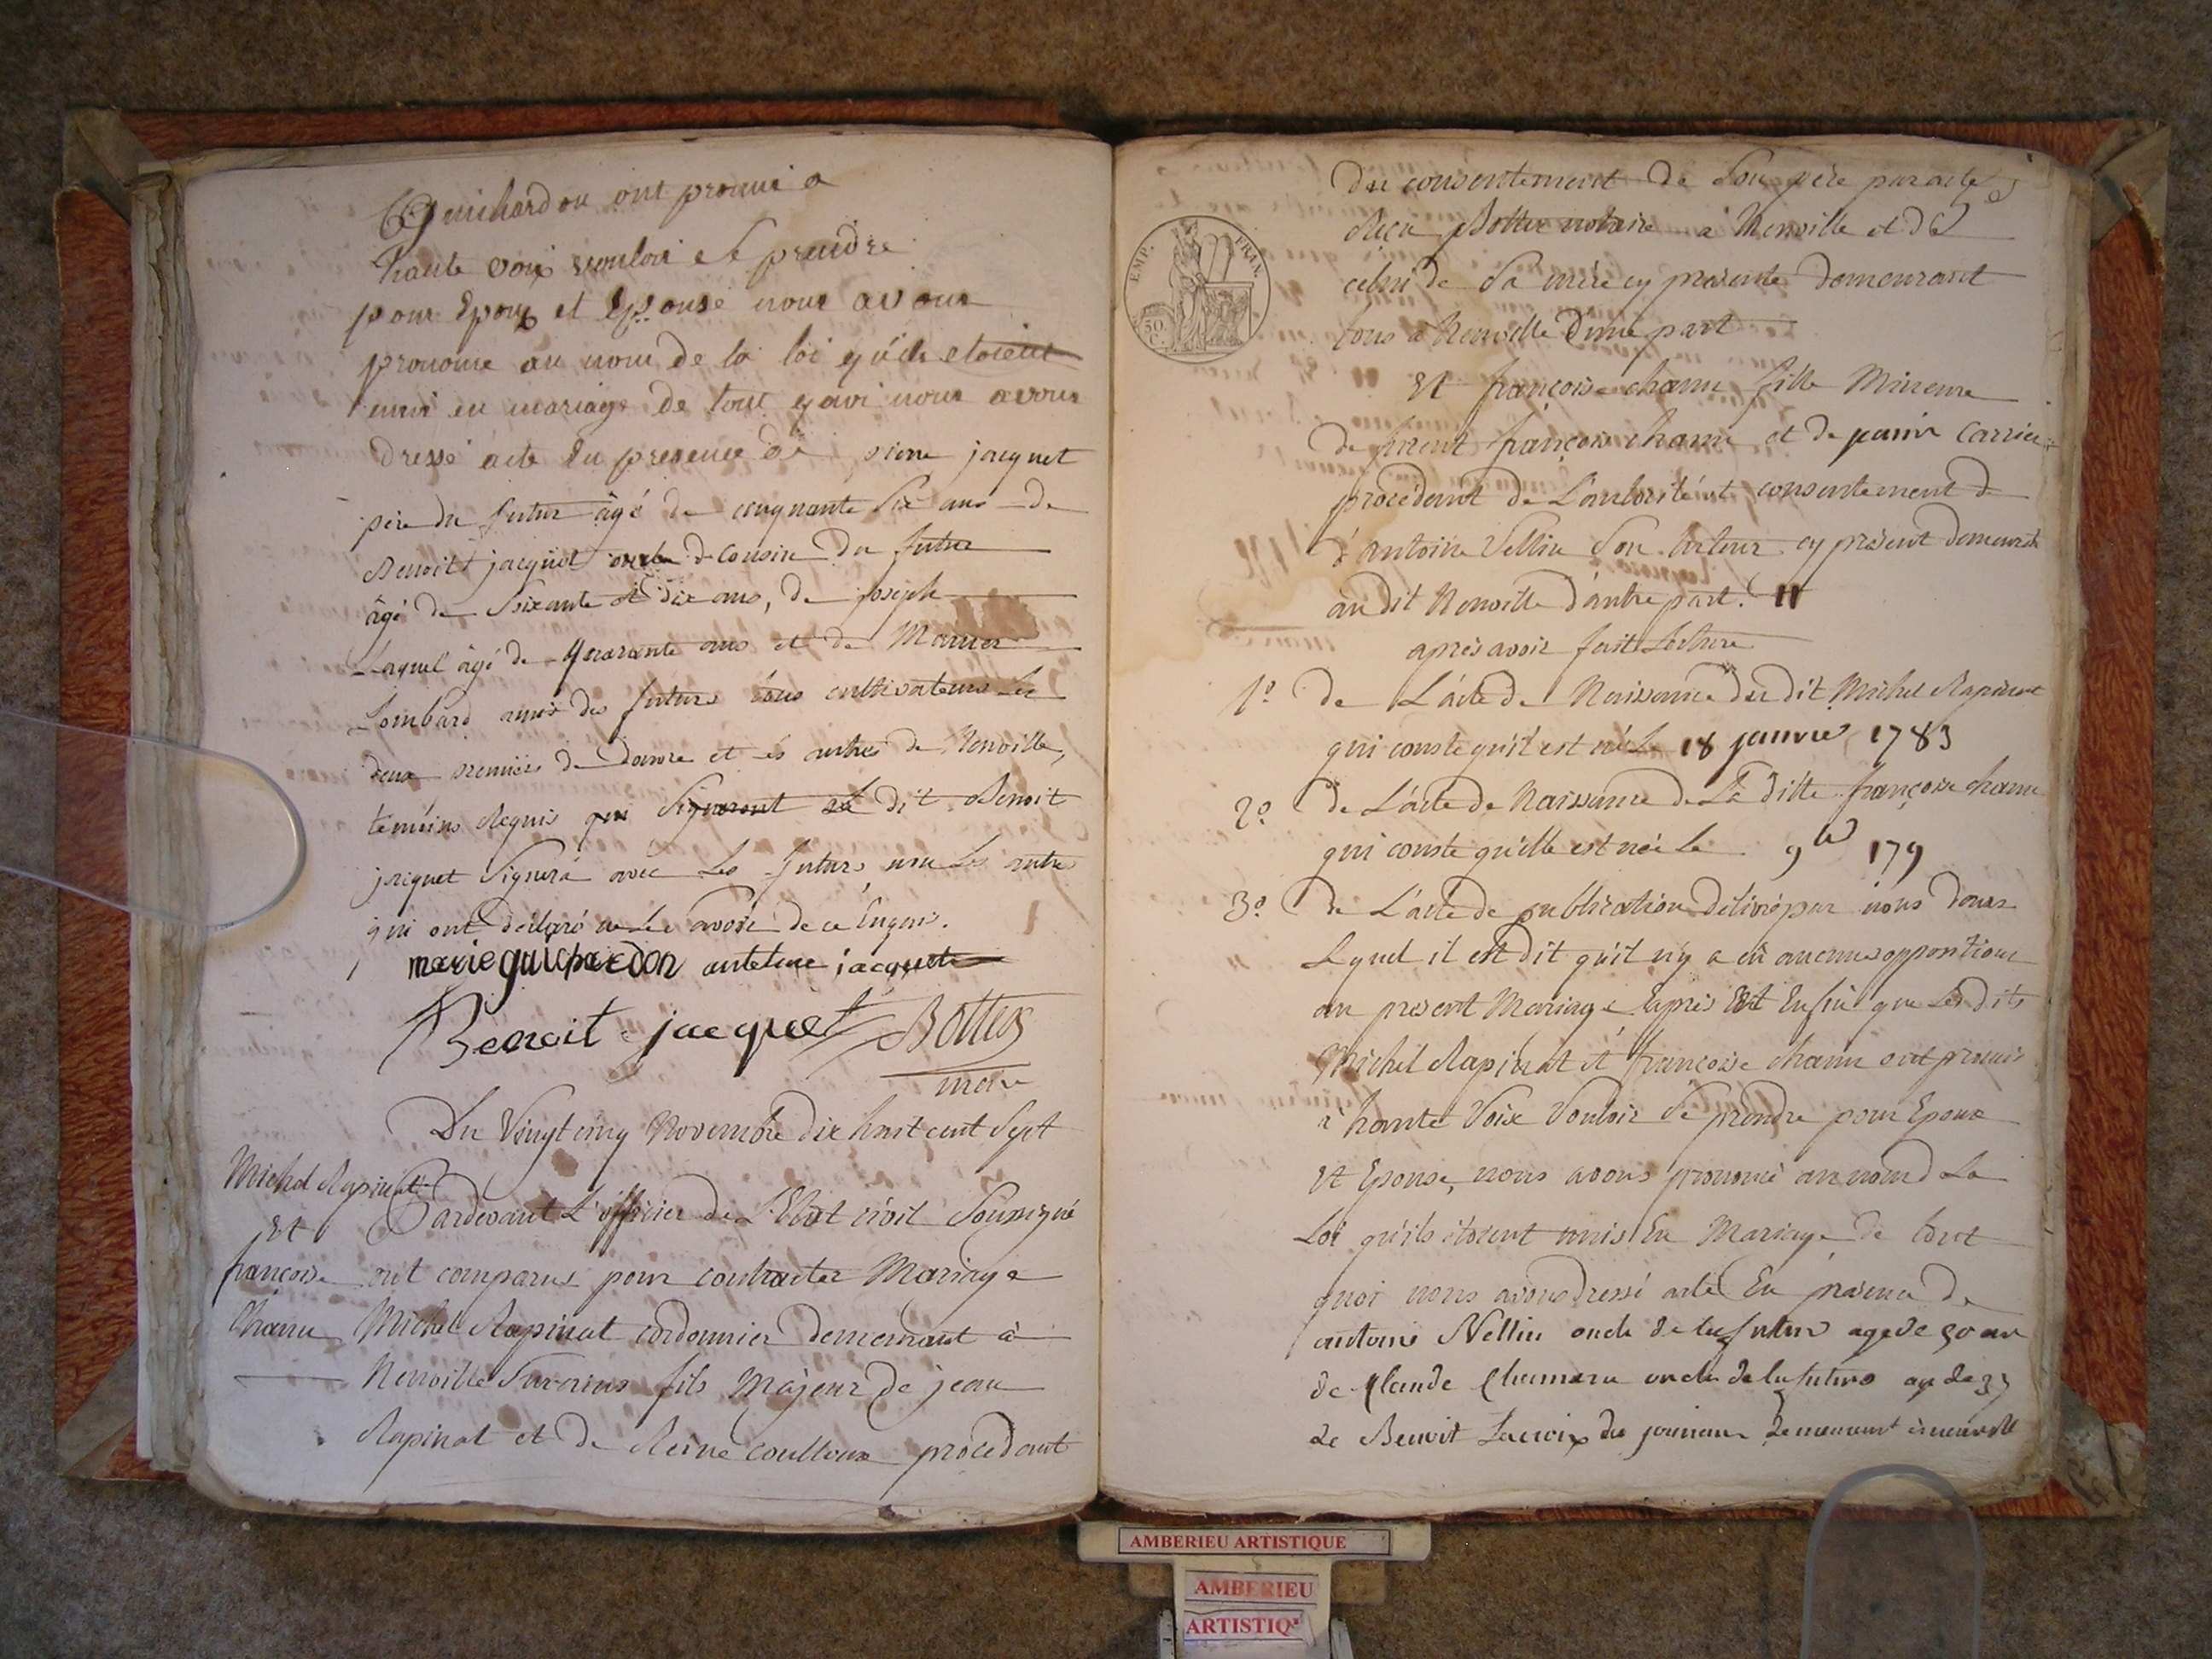 Guichardon ont promis a
haute voix vouloir se prendre
pour Epoux et Epouse nous avons
prononcé au nom de la loi qu'ils etoient
unis en mariage de tout quoi nous avons
dressé acte En presence de pierre jacquet
père du futur âgé de cinquante Six ans de
Benoit jacquet oncle d cousin du futur
âgé de Soixante et dix ans, de joseph
Laquel âgé de Quarante ans et de
Lombard amis des futurs tous cultivateurs Les
deux premiers de Douvre et és autres de Neuville,
temoins Requis qui Signeront Le dit Benoit
jacquet Signera avec Les futurs, non Les autres
qui ont declaré ne Le Savoir de ce Enquis.
marie guichardon antelme jacquet
Benoit jacquet Botter
maire
Du Vingt cinq Novembre dix huit cent Sept
Michel Rapinat
Et
françoise
Chanu
Pardevant L'officier de L'Etat civil Soussigné
ont comparus pour contracter Mariage
Michel Rapinat cordonnier demeurant à
Neuville Surains fils Majeur de jean
Rapinat et de Reine coulloux procedant
EMP. FRAN.
50 C.
du consentement de Son père par acte
Reçu Botter notaire a Neuville et de
celui de Sa mère cy presente demeurant
tous a Neuville d'une part
Et françoise chanu fille Mineure
de françois chanu et de carrier
procedant de L'autorité et consentement d
d'antoine Vellin Son tuteur cy présent demeurant
au dit Neuville d'autre part.
après avoir fait Lecture
1º de L'acte de Naissance du dit Michel Rapinat
qui conste qu'il est né Le 18 janvier 1783
2º de L'acte de Naissance de La ditte françoise chanu
qui conste qu'elle est née Le 9bre 179
3º de L'acte de publication délivré par nous dans
Lequel il est dit qu'il n'y a eû aucunes oppositions
au present Mariage Enfin que Les dits
Michel Rapinat et françoise chanu ont promis
à haute Voix Vouloir Se prendre pour Epoux
Et Epouse, nous avons prononcé au nom d La
Loi qu'ils étoient unis En Mariage de tout
quoi nous avons dressé acte En présence de
antoine Vellin oncle de la future age de 50 an
de Claude Chamara oncle de la future
de Benoit Lacroix demeurant à neuville
AMBERIEU ARTISTIQUE
AMBERIEU
ARTISTIQ